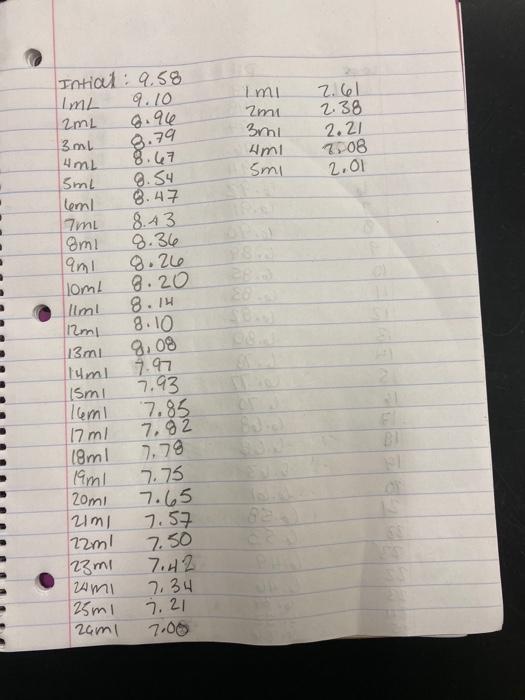 Intial : 9.58
1mL 9.10
2mL 8.96
3mL 8.79
4mL 8.67
5mL 8.54
6ml 8.47
7mL 8.43
8ml 8.36
9ml 8.26
10mL 8.20
11ml 8.14
12ml 8.10
13ml 8.08
14ml 7.97
15ml 7.93
16ml 7.85
17ml 7.82
18ml 7.78
19ml 7.75
20ml 7.65
21ml 7.57
22ml 7.50
23ml 7.42
24ml 7.34
25ml 7.21
26ml 7.08
1ml 2.61
2ml 2.38
3ml 2.21
4ml 2.08
5ml 2.01